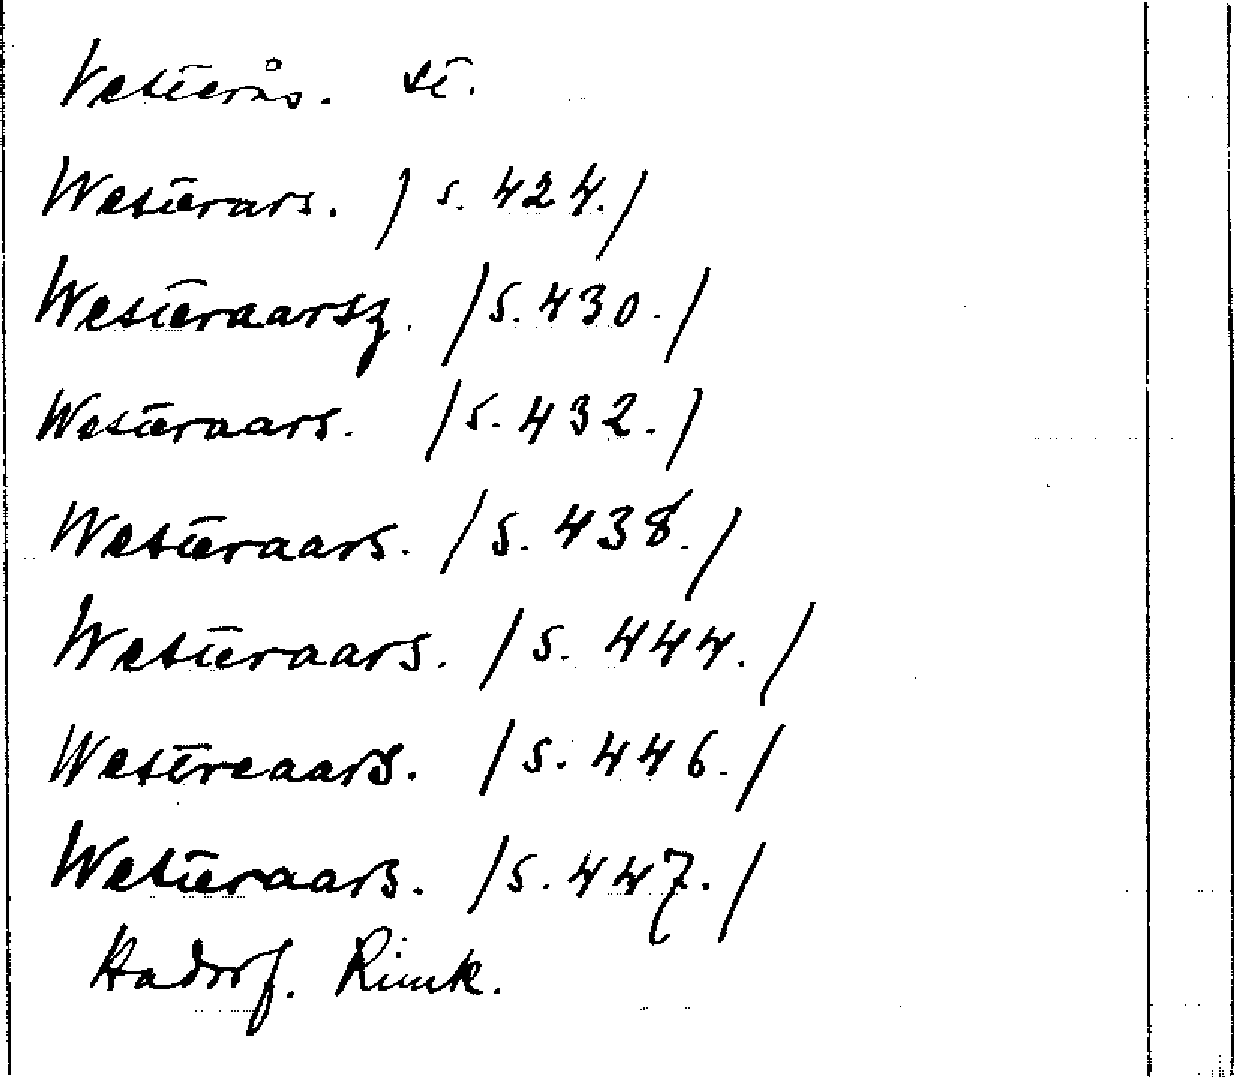 Västerås. st.
Westerars. /s. 424./
Westeraarsz. /s. 430./
Westeraars. /s. 432./
Westeraars. /s. 438./
Westeraars. /s. 444./
Westreaars. /s. 446./
Westeraars. /s. 447./
Hadorf. Rimk.